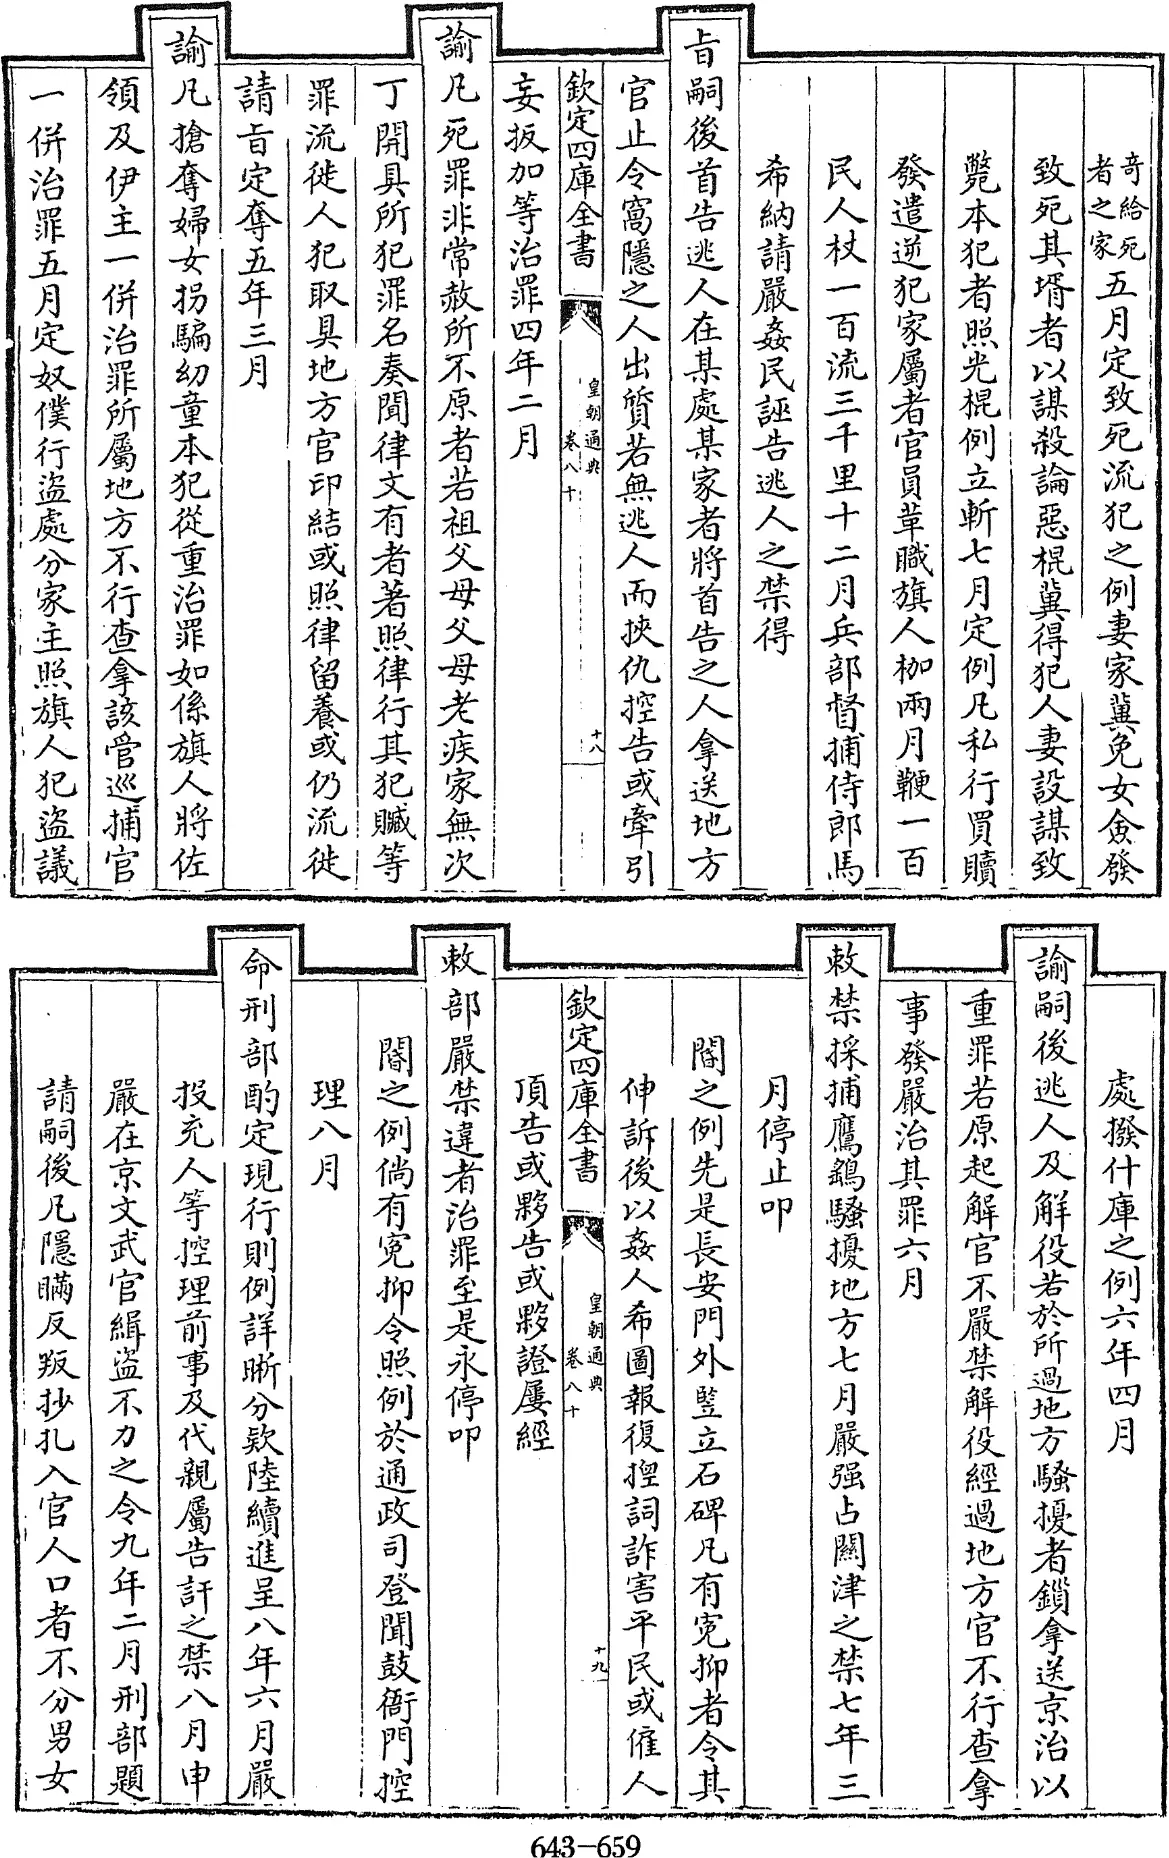 奇給死
者之家五月定致死流犯之例妻家冀免女僉發
致死其壻者以謀殺論惡棍冀得犯人妻設謀致
斃本犯者照光棍例立斬七月定例凡私行買贖
發遣逆犯家屬者官員革職旗人枷兩月鞭一百
民人杖一百流三千里十二月兵部督捕侍郎馬
希納請嚴姦民誣告逃人之禁得
旨嗣後首告逃人在某處某家者將首告之人拿送地方
官止令窩隱之人出質若無逃人而挾仇控告或牽引
欽定四庫全書
皇朝通典
卷八十
十八
妄扳加等治罪四年二月
諭凡死罪非常赦所不原者若祖父母父母老疾家無次
丁開具所犯罪名奏聞律文有者著照律行其犯贓等
罪流徙人犯取具地方官印結或照律留養或仍流徙
請旨定奪五年三月
諭凡搶奪婦女拐騙幼童本犯從重治罪如係旗人將佐
領及伊主一併治罪所屬地方不行查拿該管巡捕官
一併治罪五月定奴僕行盜處分家主照旗人犯盜議
處撥什庫之例六年四月
諭嗣後逃人及解役若於所過地方騷擾者鎖拿送京治以
重罪若原起解官不嚴禁解役經過地方官不行查拿
事發嚴治其罪六月
敕禁採捕鷹鷂騷擾地方七月嚴强占關津之禁七年三
月停止叩
閽之例先是長安門外豎立石碑凡有寃抑者令其
伸訴後以姦人希圖報復捏詞詐害平民或僱人
欽定四庫全書
皇朝通典
卷八十
十九
頂告或夥告或夥證屢經
敕部嚴禁違者治罪至是永停叩
閽之例倘有寃抑令照例於通政司登聞鼓衙門控
理八月
命刑部酌定現行則例詳晰分欵陸續進呈八年六月嚴
投充人等控理前事及代親屬告訐之禁八月申
嚴在京文武官緝盜不力之令九年二月刑部題
請嗣後凡隱瞞反叛抄扎入官人口者不分男女
643-659